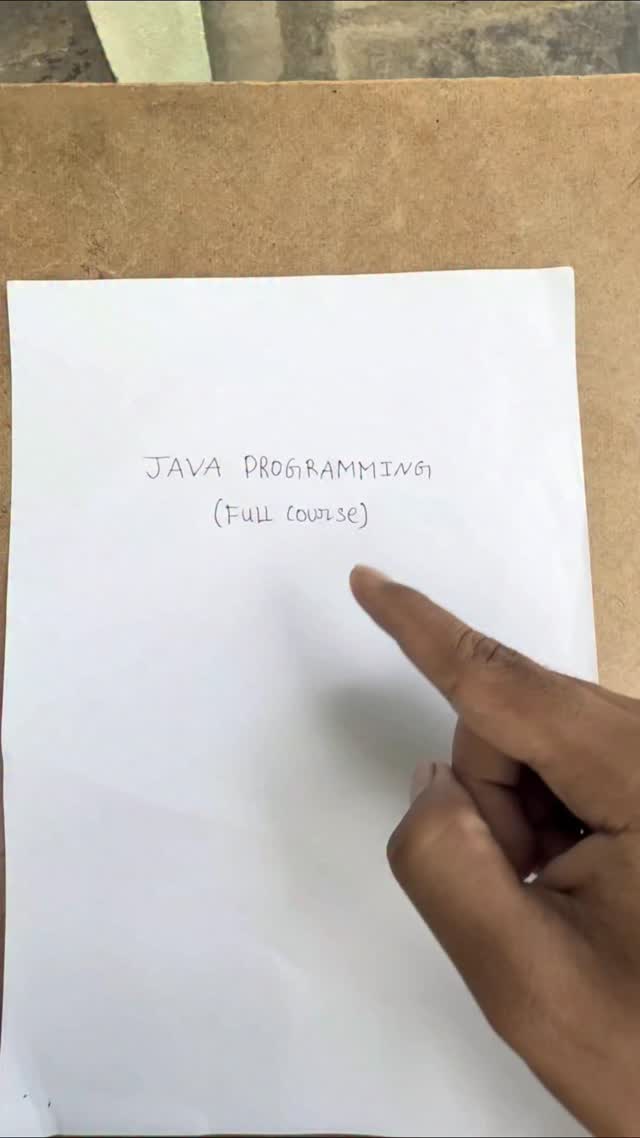 JAVA PROGRAMMING
(FULL COURSE)